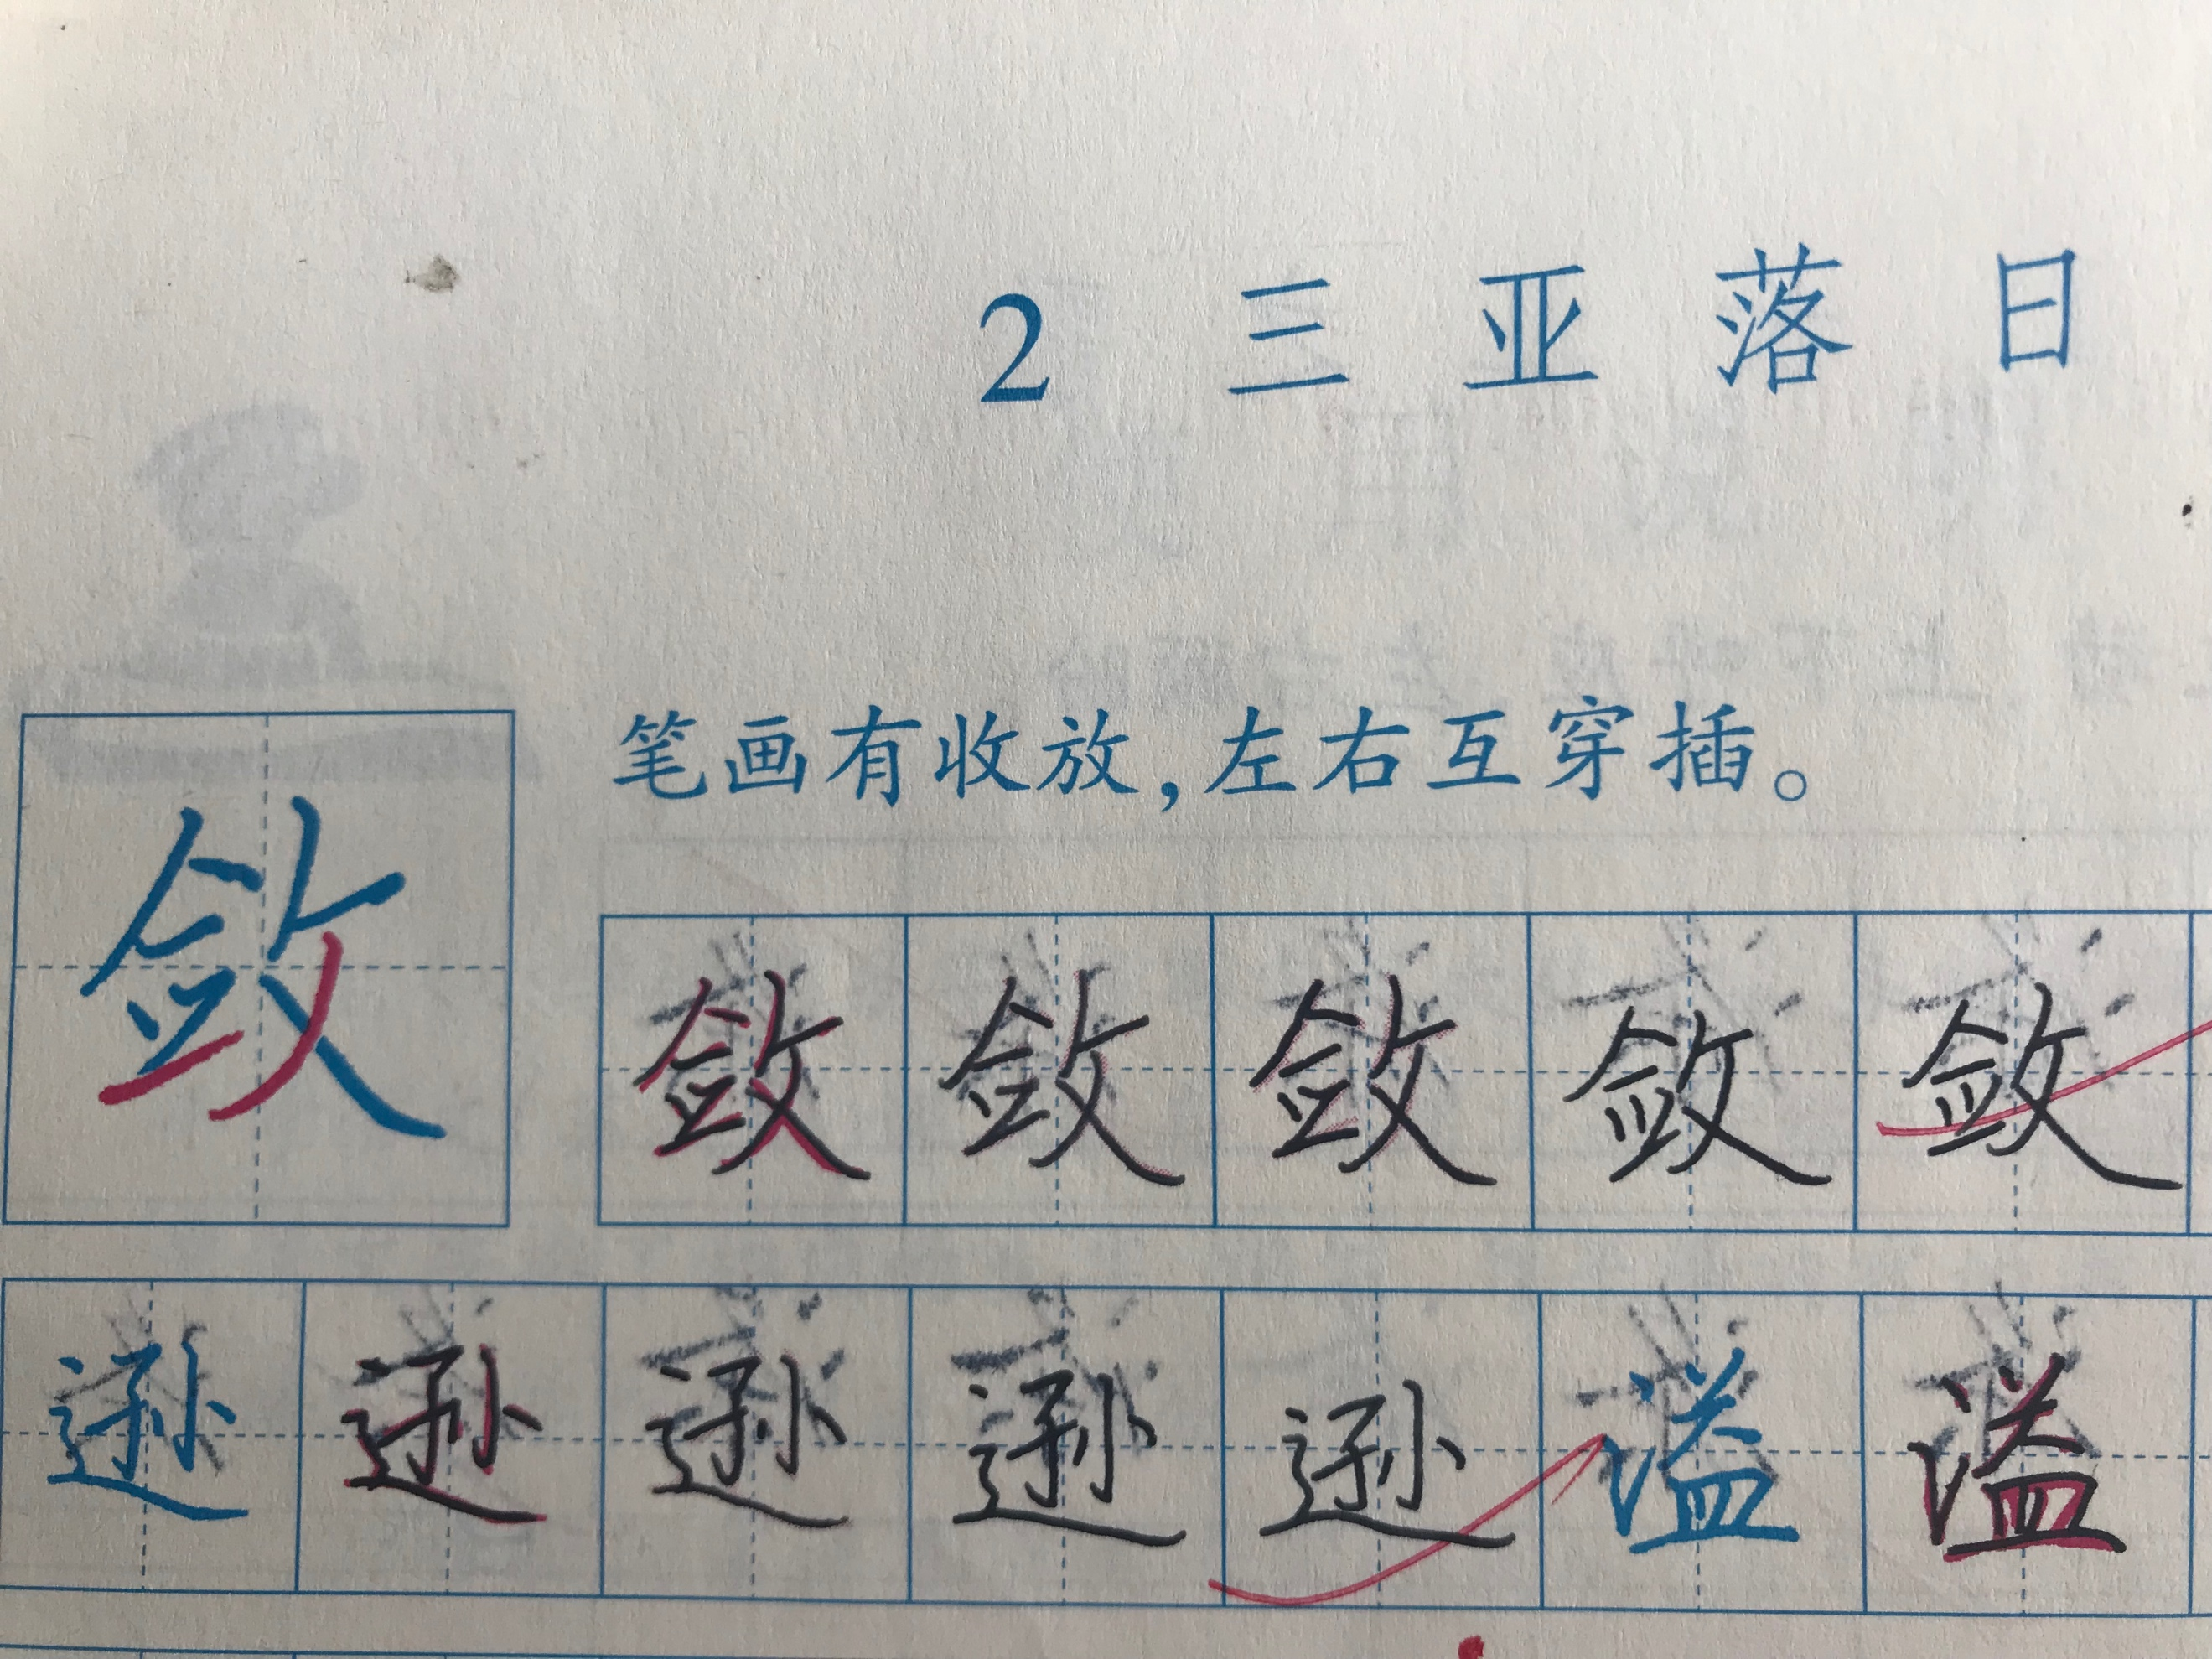 2 三亚落日
笔画有收放，左右互穿插。
敛 敛 敛 敛 敛 敛
逊 逊 逊 逊 逊 谥 谥